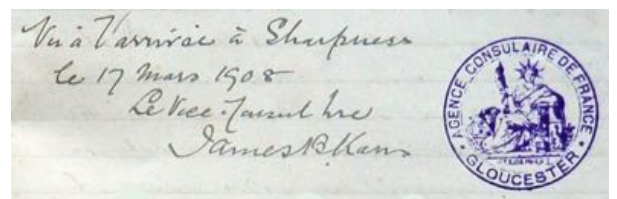 Vu à l'arrivée à Sharpness
le 17 Mars 1908
Le Vice-Consul
James B Karn
AGENCE CONSULAIRE DE FRANCE
• GLOUCESTER •